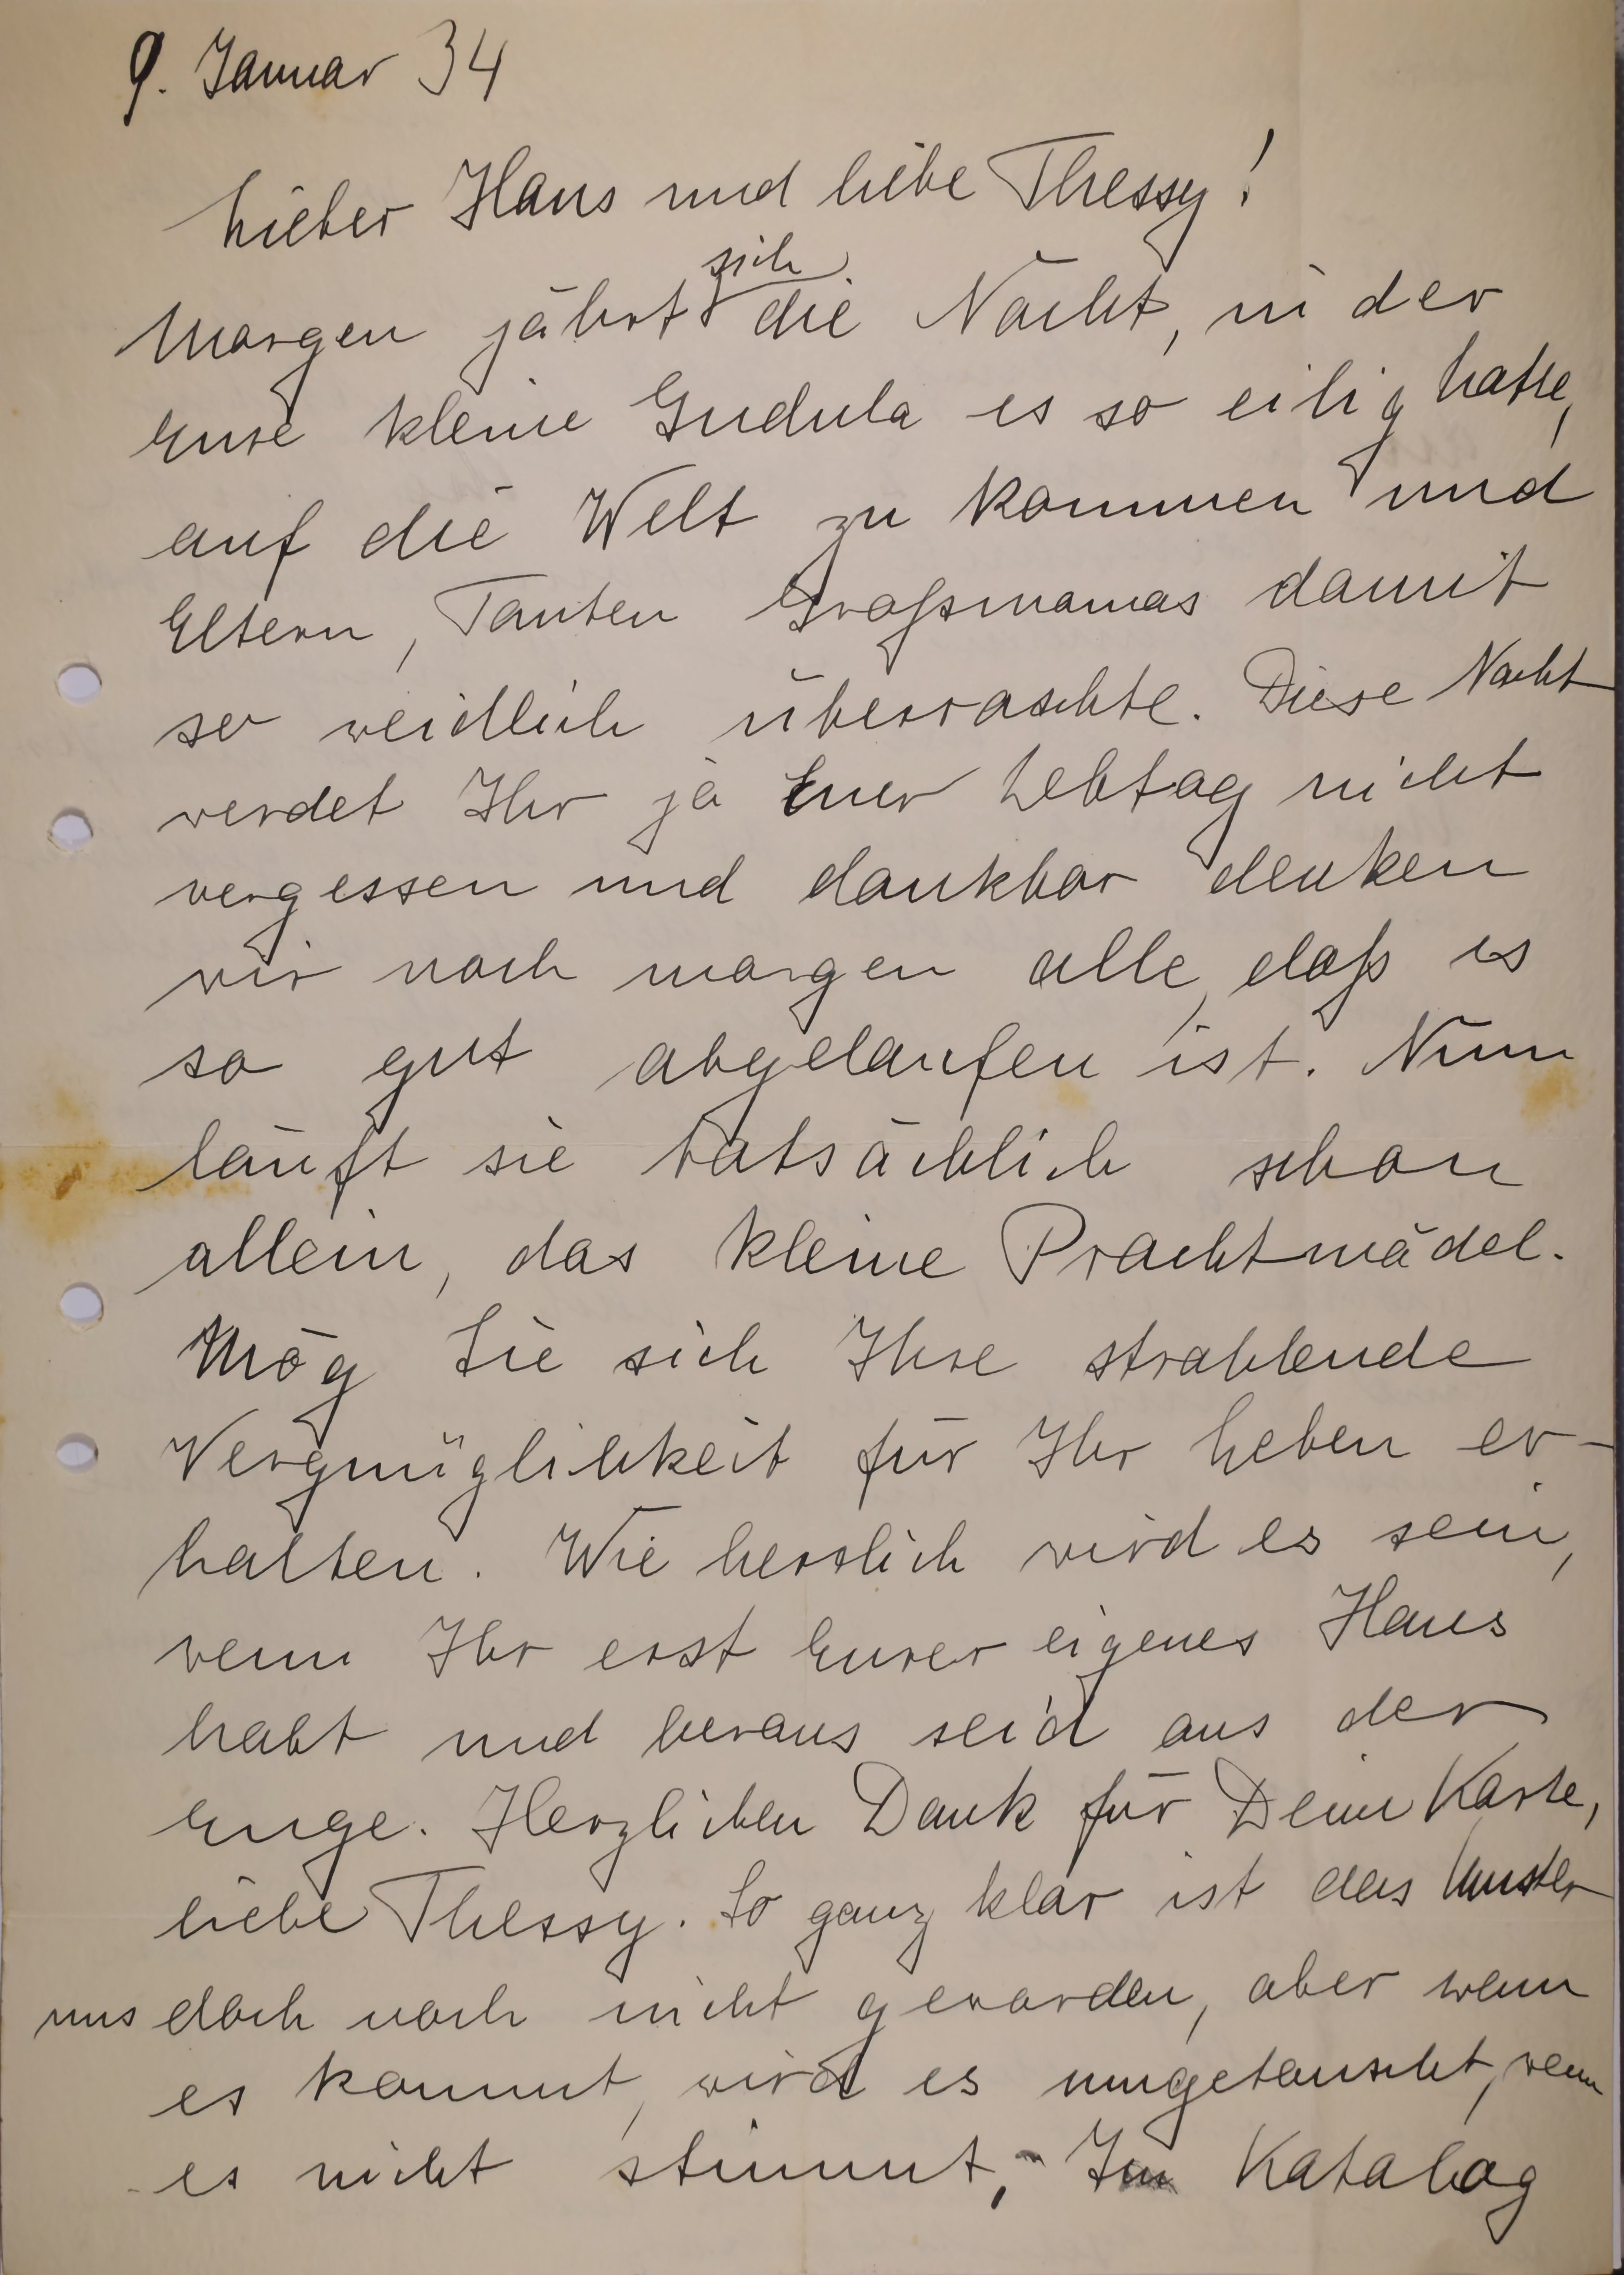 9. Januar 34
Lieber Hans und liebe Thessy!
Morgen jährt sich die Nacht, in der
Eure kleine Gudula es so eilig hatte,
auf die Welt zu kommen und
Eltern, Tanten Großmamas damit
so weidlich überraschte. Diese Nacht
werdet Ihr ja Euer Lebtag nicht
vergessen und dankbar denken
wir noch morgen alle, daß es
so gut abgelaufen ist. Nun
läuft sie tatsächlich schon
allein, das kleine Prachtmädel.
Mög Sie sich Ihre strahlende
Vergnüglichkeit für Ihr Leben er-
halten. Wie herrlich wird es sein,
wenn Ihr erst Eurer eigenes Haus
habt und heraus seid aus der
Enge. Herzlichen Dank für Deine Karte,
liebe Thessy. So ganz klar ist das Muster
uns doch noch nicht geworden, aber wenn
es kommt, wird es umgetauscht, wenn
es nicht stimmt, Im Katalog